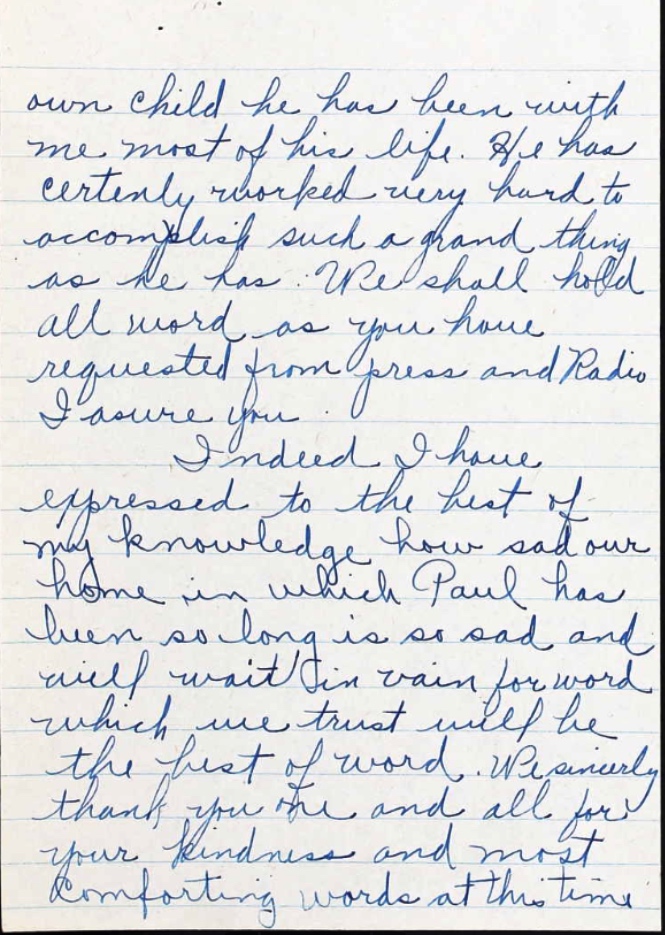 own child he has been with
me most of his life. He has
certenly worked very hard to
accomplish such a grand thing
as he has. We shall hold
all word as you have
requested from press and Radio
I asure you.
Indeed I have
expressed to the best of
my knowledge how sad our
home in which Paul has
been so long is so sad and
will wait in vain for word
which we trust will be
the best of word. We sincerly
thank you one and all for
your kindness and most
comforting words at this time